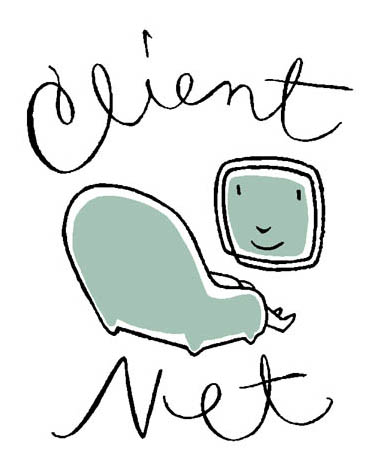 Client
Net